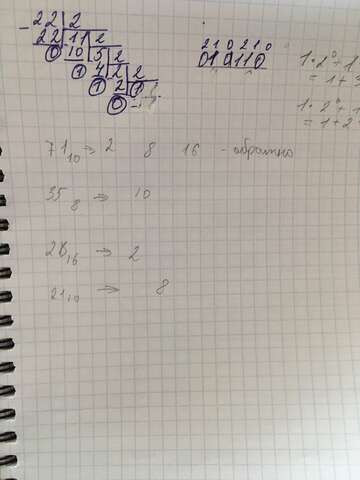 - 22 | 2
22 | 11 | 2
0 10 | 5 | 2
1 4 | 2 | 2
1 2 | 1
0
2 1 0 2 1 0
0 1 0 1 1 0
1·2⁰+1
= 1+
1·2⁰+1
= 1+2
71₁₀ → 2 8 16 - обратно
35₈ → 10
₁₆ → 2
21₁₀ → 8